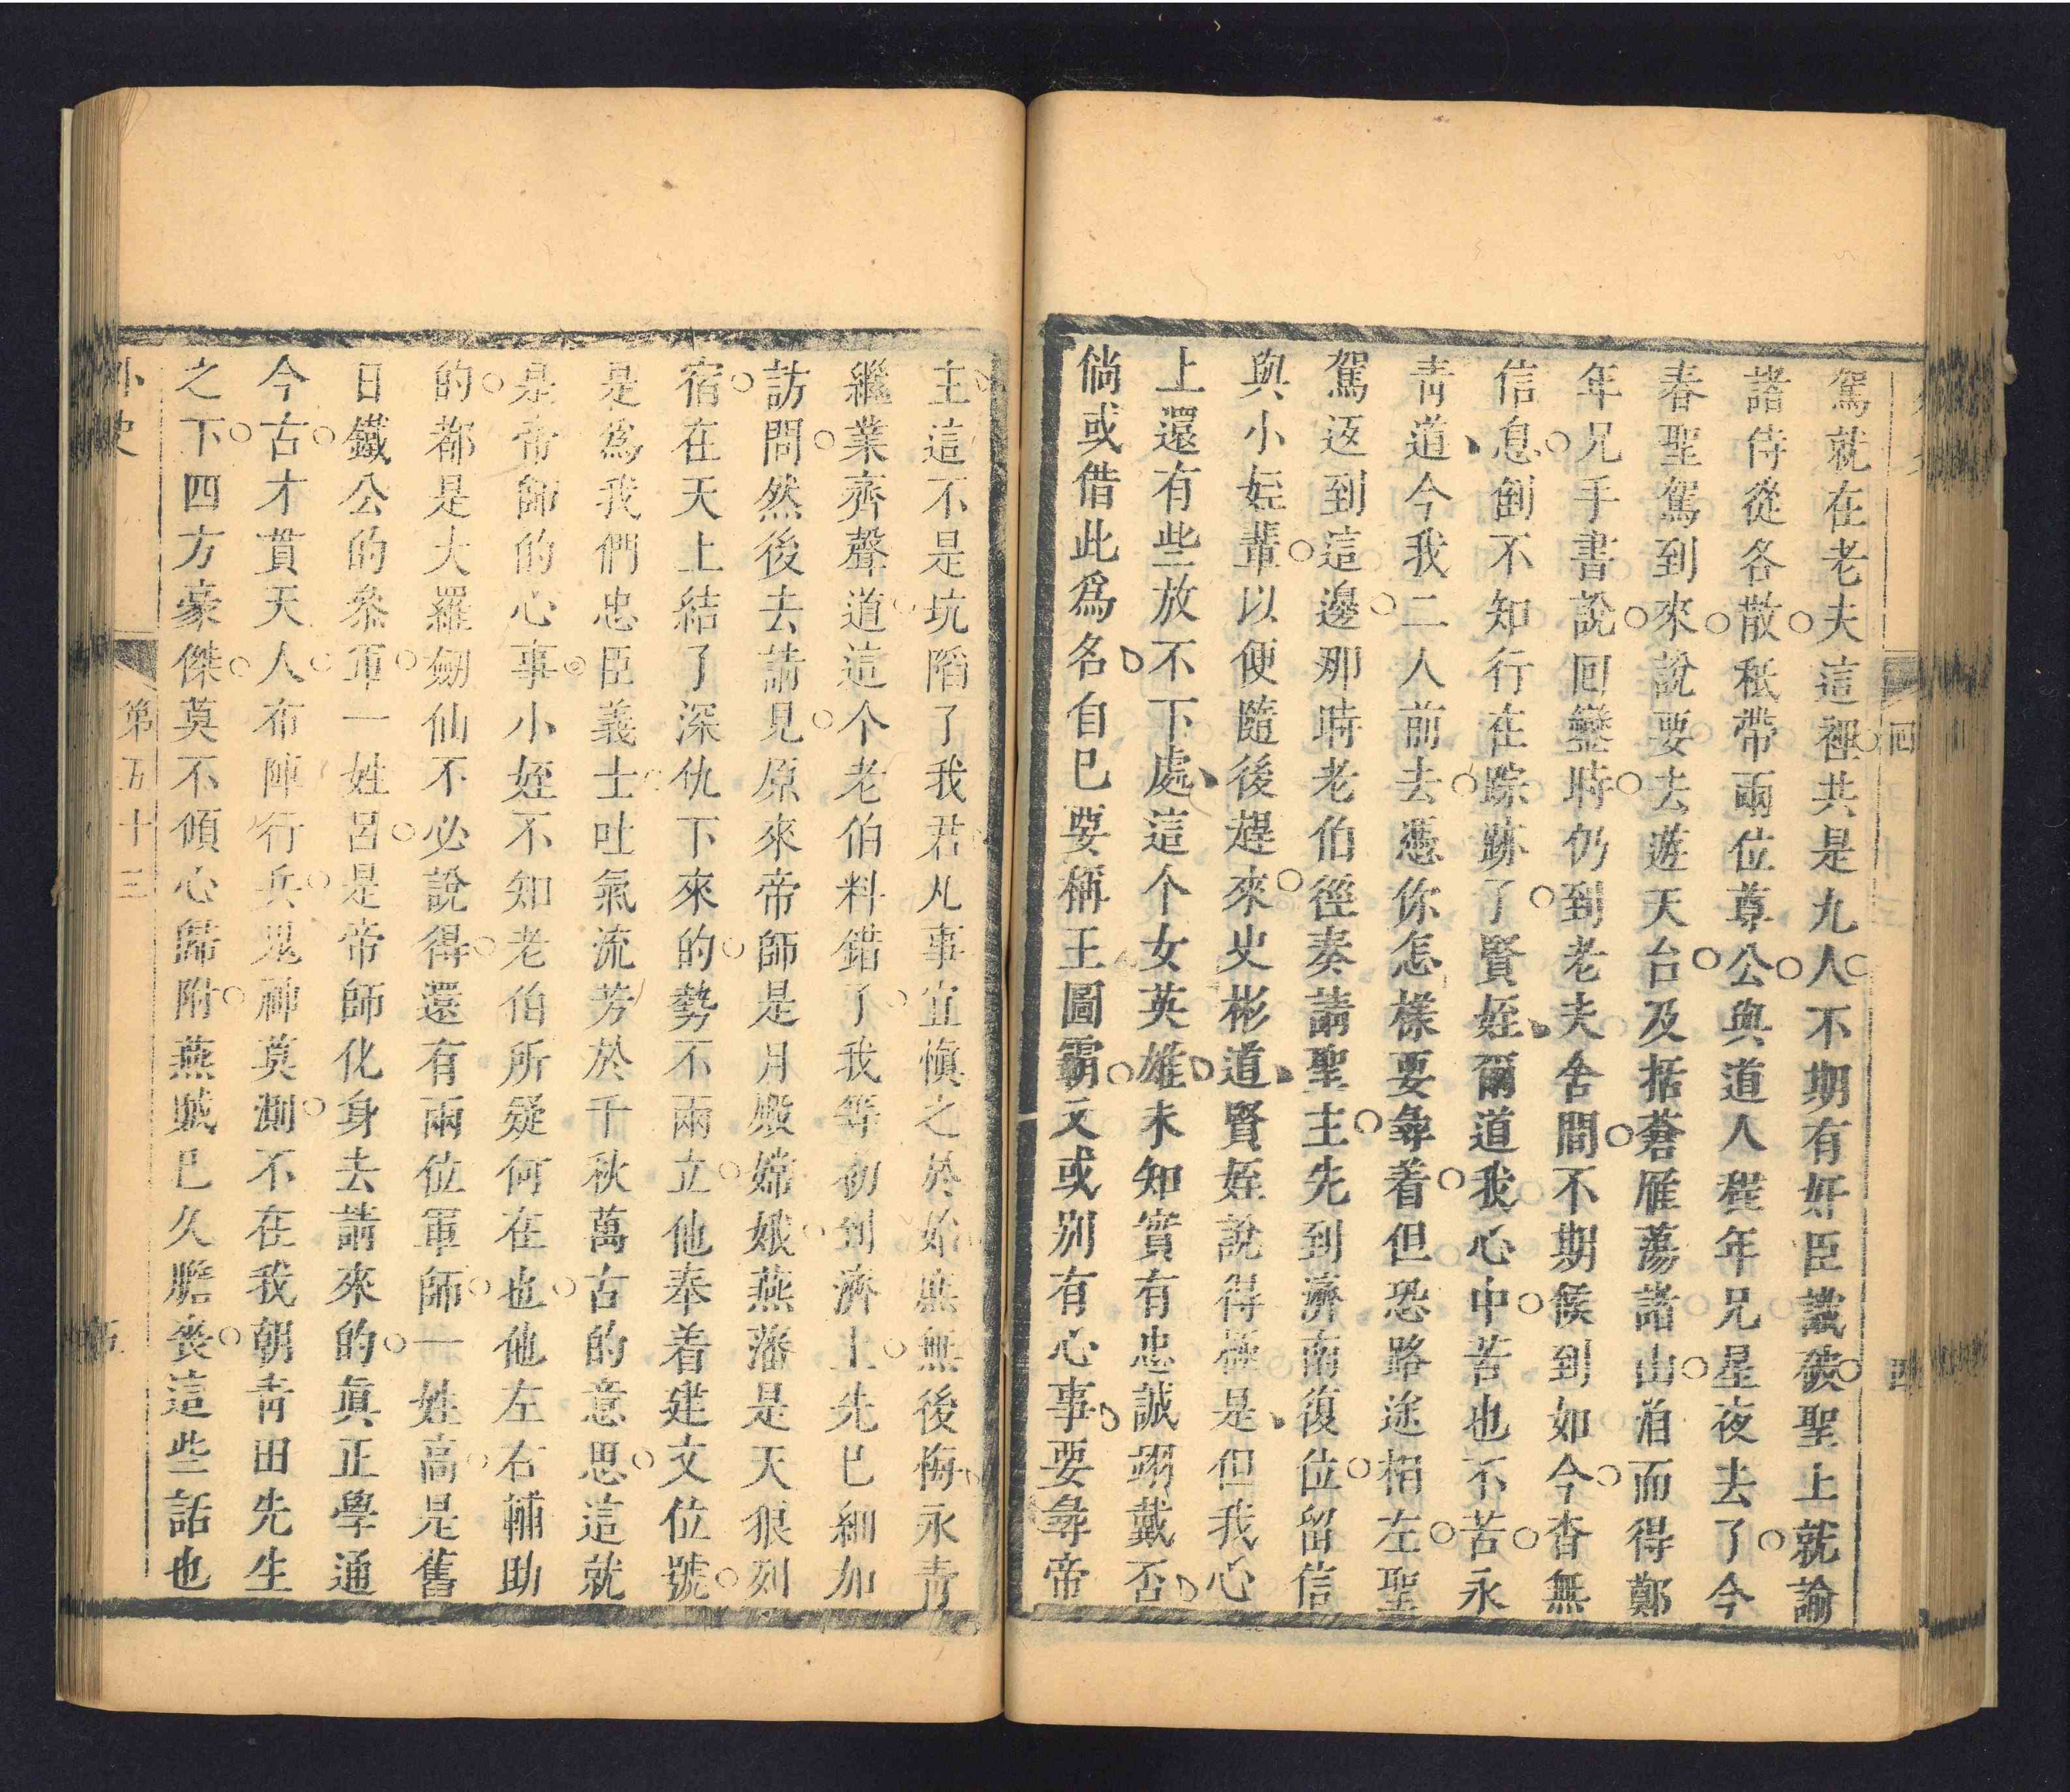 駕就在老夫這裡共是九人不期有奸臣識破聖上就諭
諸侍從各散秪帶兩位尊公與道人程年兄星夜去了今
春聖駕到來說要去遊天台及括蒼雁蕩諸山㳙而得鄭
年兄手書說回鑾時仍到老夫舍間不期候到如今杳無
信息倒不知行在踪跡了賢姪爾道我心中苦也不苦永
青道今我二人前去憑你怎樣要尋着但恐路途相左聖
駕返到這邊那時老伯徑奏請聖主先到濟南復位留信
與小姪輩以便隨後趕來史彬道賢姪說得極是但我心
上還有些放不下處這个女英雄未知實有忠誠翊戴否
倘或借此為名自已要稱王圖霸又或别有心事要尋帝
主這不是坑陷了我君凡事宜慎之於始庶無後悔永青
繼業齊聲道這个老伯料錯了我等初到濟上先已細加
訪問然後去請見原來帝師是月殿嫦娥燕藩是天狼列
宿在天上結了深仇下來的勢不兩立他奉着建文位號
是為我們忠臣義士吐氣流芳於千秋萬古的意思這就
是帝師的心事小姪不知老伯所疑何在也他左右輔助
的都是大羅劒仙不必說得還有兩位軍師一姓高是舊
日鐵公的叅軍一姓呂是帝師化身去請來的真正學通
今古才貫天人布陣行兵鬼神莫測不在我朝青田先生
之下四方豪傑莫不傾心歸附燕賊已久膽喪這些話也
外史
第五十三